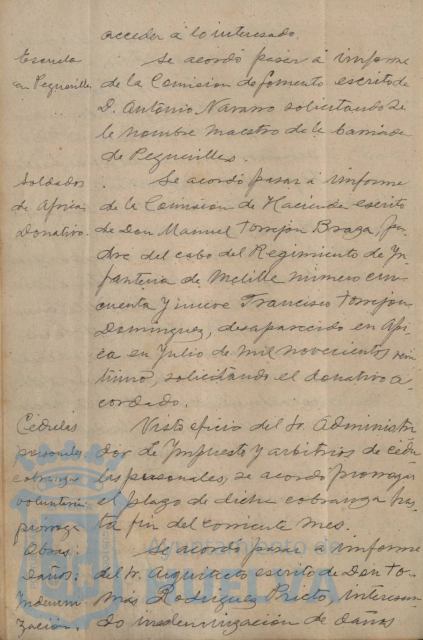 acceder á lo interesado.
Escuela
en Peguerillas
Se acordó pasar á informe
de la Comision de fomento escrito de
D. Antonio Navarro solicitando se
le nombre maestro de la barriada
de Peguerillas.
Soldados
de Africa
Donativo.
Se acordó pasar á informe
de la Comision de Hacienda escrito
de Don Manuel Torrejon Braga, pa-
dre del cabo del Regimiento de In-
fanteria de Melilla número cin-
cuenta y nueve Francisco Torrejon
Dominguez, desaparecido en Afri-
ca en Julio de mil novecientos vein-
tiuno, solicitando el donativo a-
cordado.
Cédulas
personales
cobranza
voluntaria
prorroga
Visto oficio del Sr. Administra-
dor de Impuesto y arbitrios de cédu-
las personales, se acordó prorrogar
el plazo de dicha cobranza has-
ta fin del corriente mes.
Obras:
Daños:
Indemni-
zación.
Se acordó pasar á informe
del Sr. Arquitecto escrito de Don To-
más Rodriguez Prieto, interesan-
do indemnización de daños
Ayuntamiento de